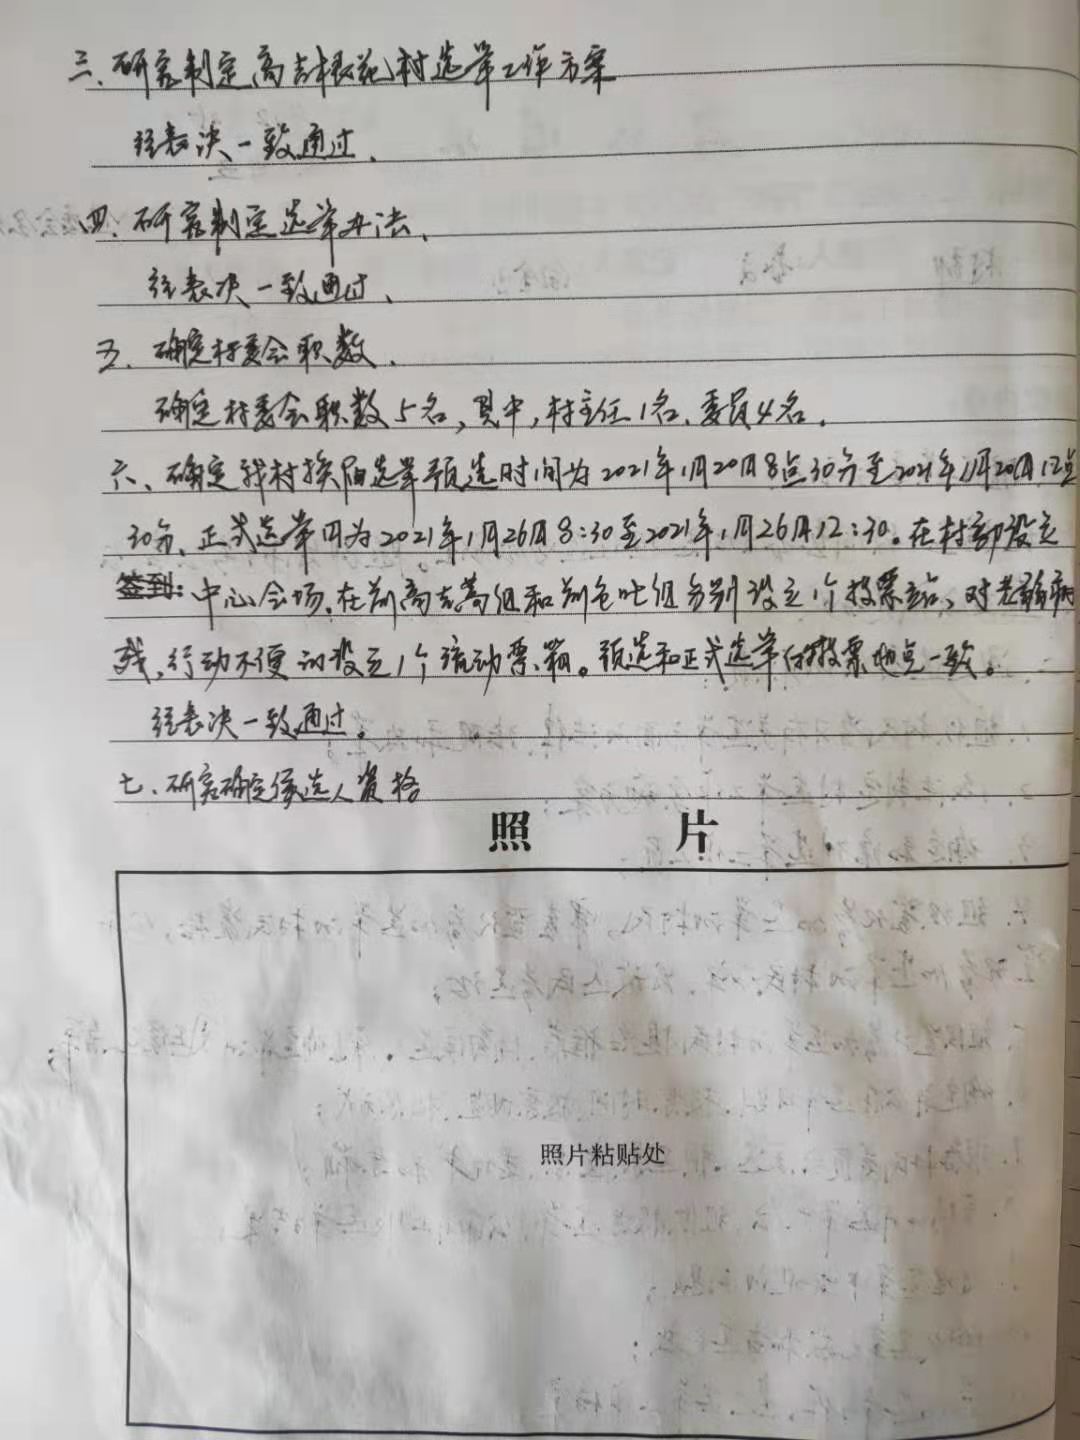 三、研究制定高吉根花村选举工作方案
经表决一致通过、
四、研究制定选举办法、
经表决一致通过、
五、确定村委会职数、
确定村委会职数5名,其中,村主任1名、委员4名、
六、确定我村换届选举预选时间为2021年1月20日8点30分至2021年1月20日12点
30分、正式选举日为2021年1月26日8:30至2021年1月26日12:30。在村部设立
签到:中心会场、在前高吉高组和前色吐组分别设立1个投票站、对老弱病
残、行动不便的设立1个流动票箱。预选和正式选举的投票地点一致。
经表决一致通过。
七、研究确定候选人资格
照 片
照片粘贴处